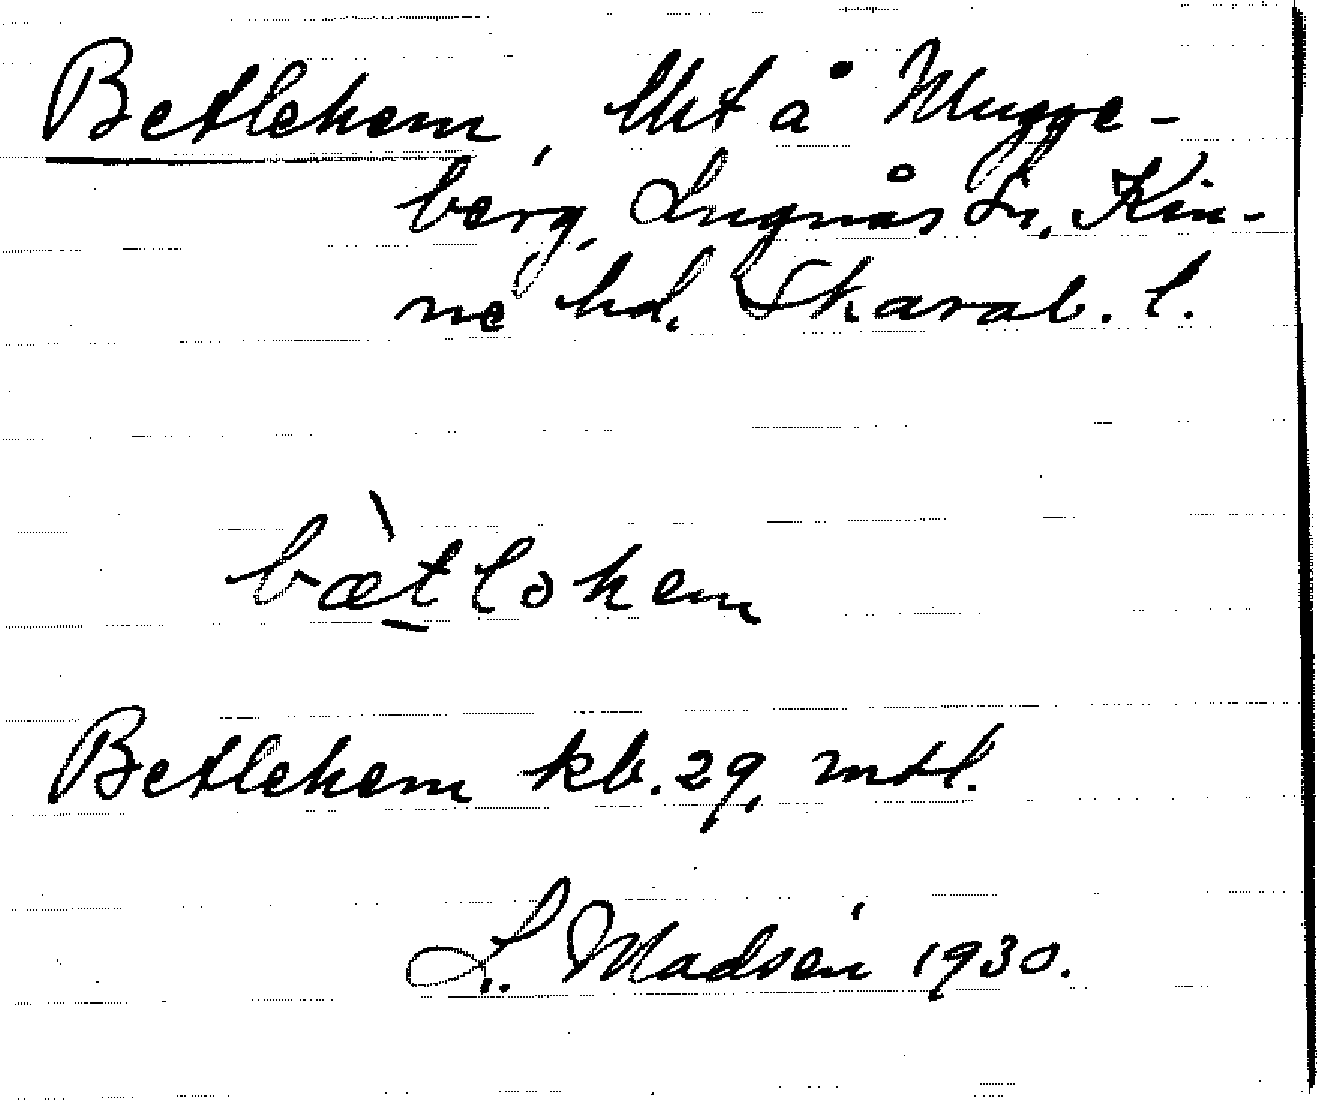 Betlehem, lht å Mugge-
berg, Lugnås sn, Kin-
ne hd. Skarab. l.
bæ̀tlohem
Betlehem kb. 29, mtl.
L. Madsén 1930.